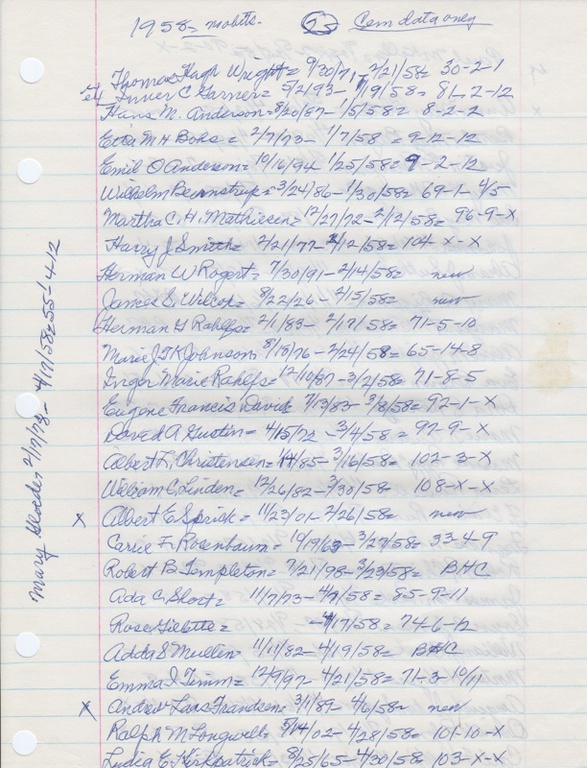 1958= mobits. 27 Cem data only
Thomas Hugh Wright= 9/30/71 - 2/21/58= 30-2-1
Inver C. Garner= 5/2/93 - 1/19/58= 81-2-12
Hans M. Anderson= 8/20/87 - 1/5/58= 8-2-2
Etta M H Bohs = 2/7/73 - 1/7/58 = 9-12-12
Emil O Anderson= 10/16/94 1/25/58= 9-2-12
Wilhelm Bernstrup= 3/24/86 - 1/30/58= 69-1-4/5
Martha C. H. Mathiesen= 12/27/72 - 2/12/58= 96-9-X
Harry J Smith= 2/21/77 2/12/58= 104-X-X
Herman W Rogert= 7/30/91 - 2/14/58= new
James E. Wilcox= 8/22/26 - 2/15/58= new
Herman G Rahlfs= 2/1/83 - 2/17/58= 71-5-10
Marie J. T. K Johnson 8/18/76 - 2/24/58= 65-14-8
Inger Marie Rahlfs= 12/10/87 - 3/2/58= 71-8-5
Eugene Francis David 7/13/83 - 3/8/58= 92-1-X
David A Gustin= 4/15/72 - 3/4/58 = 97-9-X
Albert L. Christensen= 1/4/85 - 3/16/58= 102-3-X
William C. Linden= 12/26/82 - 3/30/58 108-X-X
X Albert E. Sprick= 11/23/01 - 2/26/58= new
Carrie F. Rosenbaum= 10/19/63 - 3/27/58= 33-4-9
Robert B. Templeton= 7/21/98 - 3/23/58= BHC
Ada C. Short= 11/7/73 - 4/7/58= 85-9-11
Rose Gillette= - 4/17/58= 74-6-12
Adda S Mullen= 11/11/82 - 4/19/58= BHC
Emma I. Timm= 12/9/97 - 4/21/58= 71-3-10/11
X Andrew Laas Frandsen= 3/1/89 - 4/6/58= new
Ralph M Longwell= 5/14/02 - 4/28/58= 101-10-X
Lydia E Kirkpatrick= 8/25/65 - 4/30/58 103-X-X
Mary 2/7/78= 4/17/58=55-4-12